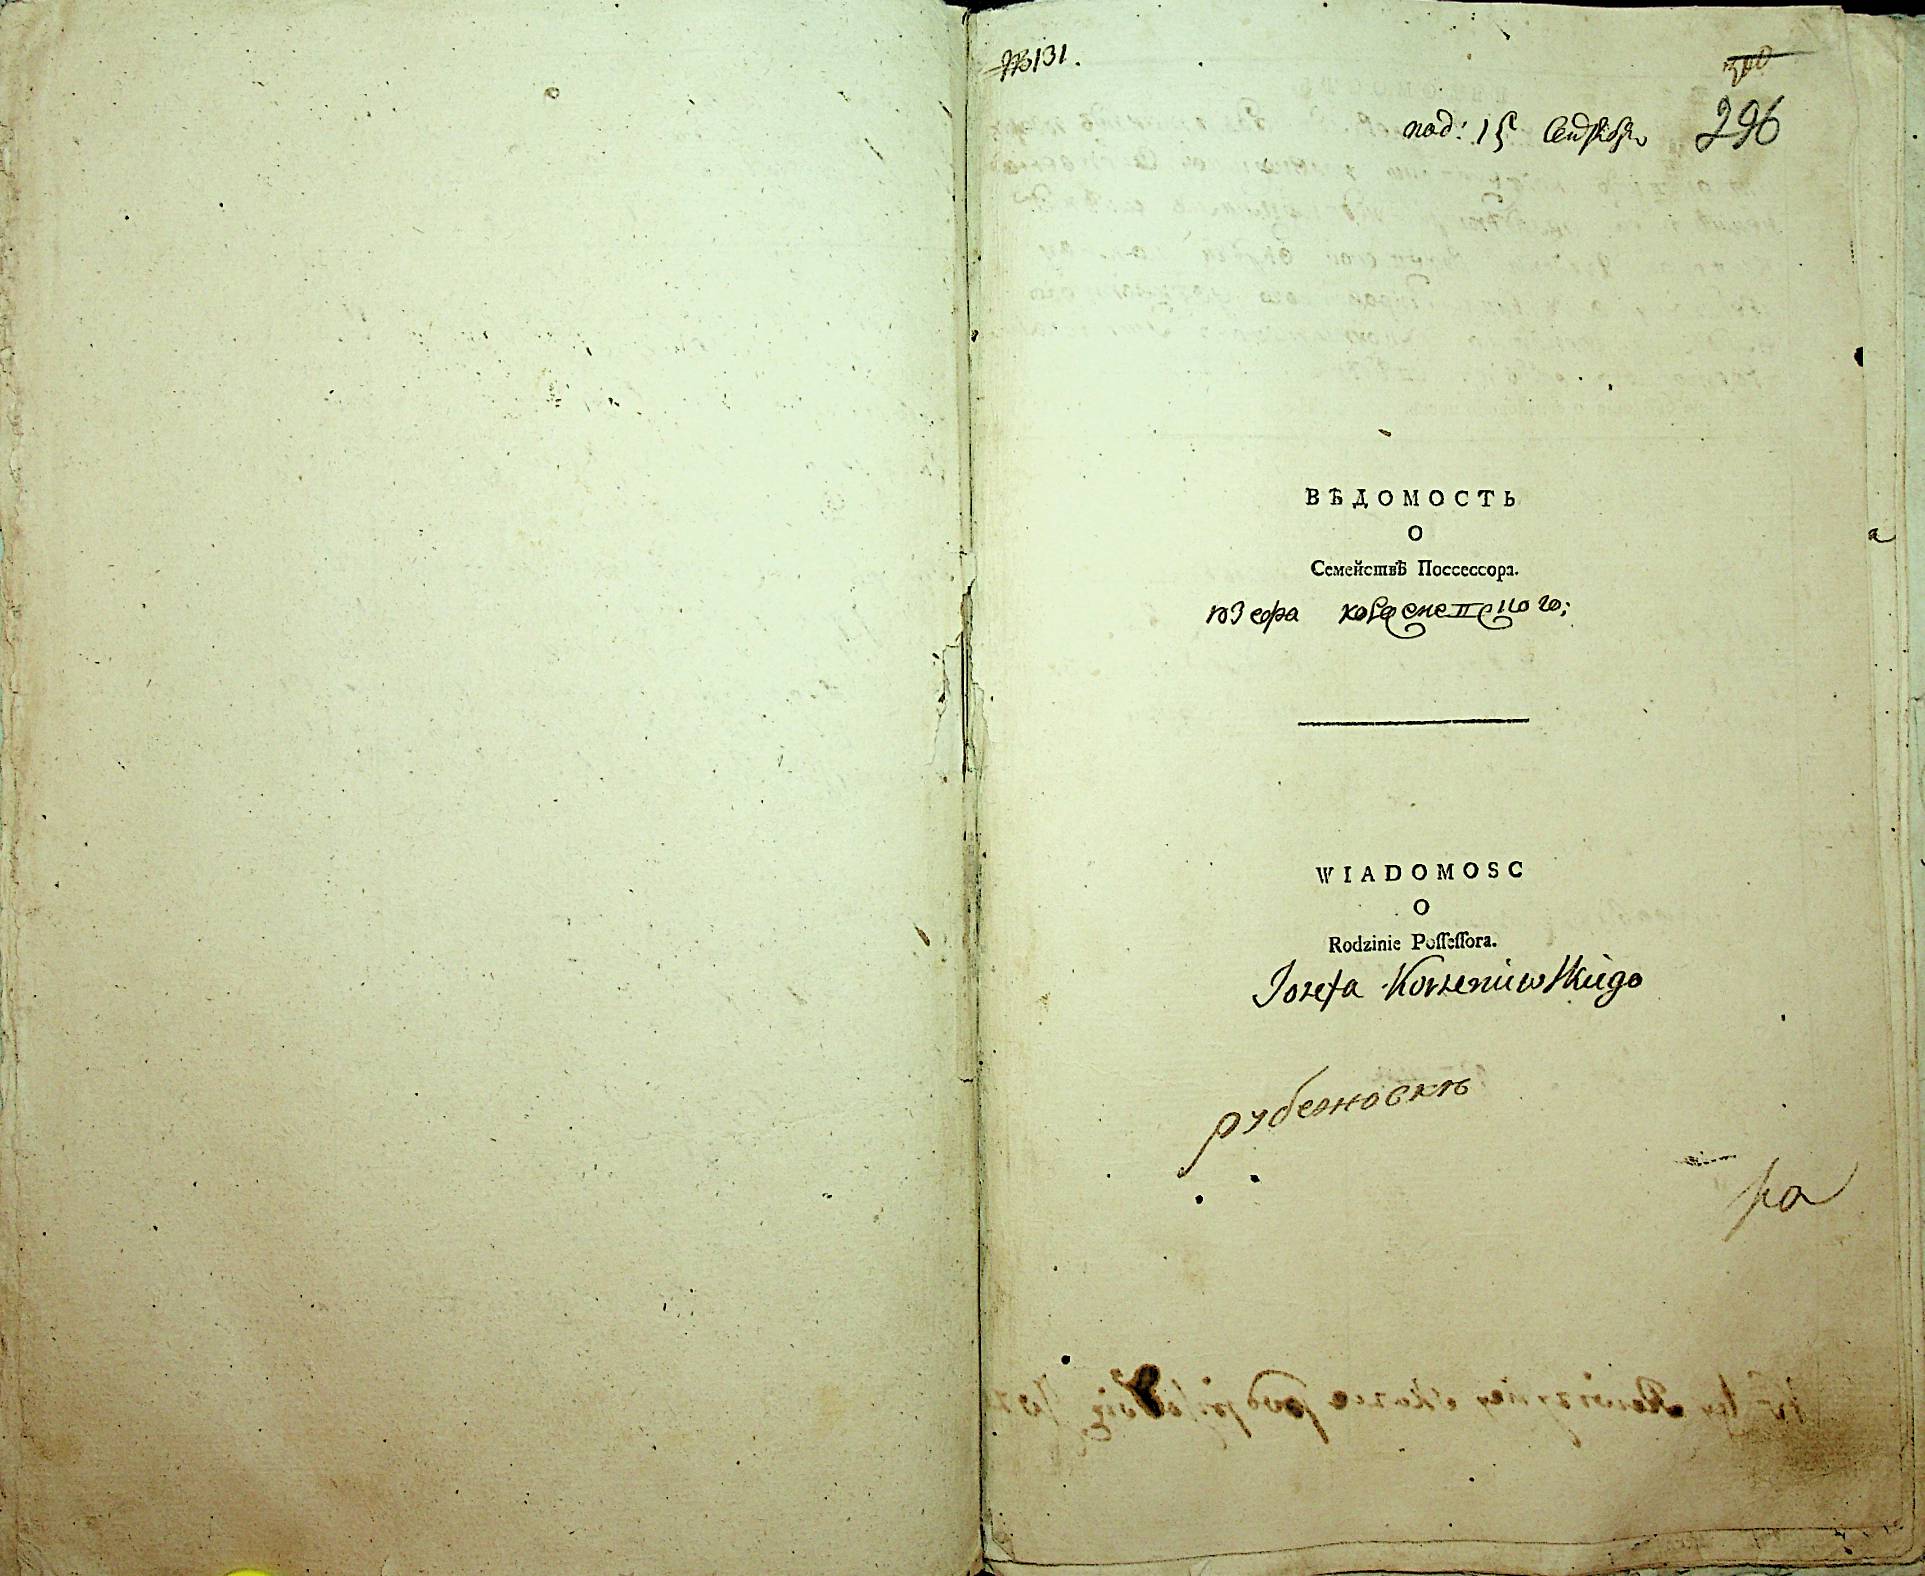 №131.
300
296
под: 15 Сентября
ВѢДОМОСТЬ
О
Семействѣ Поссессора.
юзефа корженевского;
WIADOMOSC
O
Rodzinie Poſſeſſora.
Jozefa Korzeniewſkiego
рубеновкѣ
ра
а